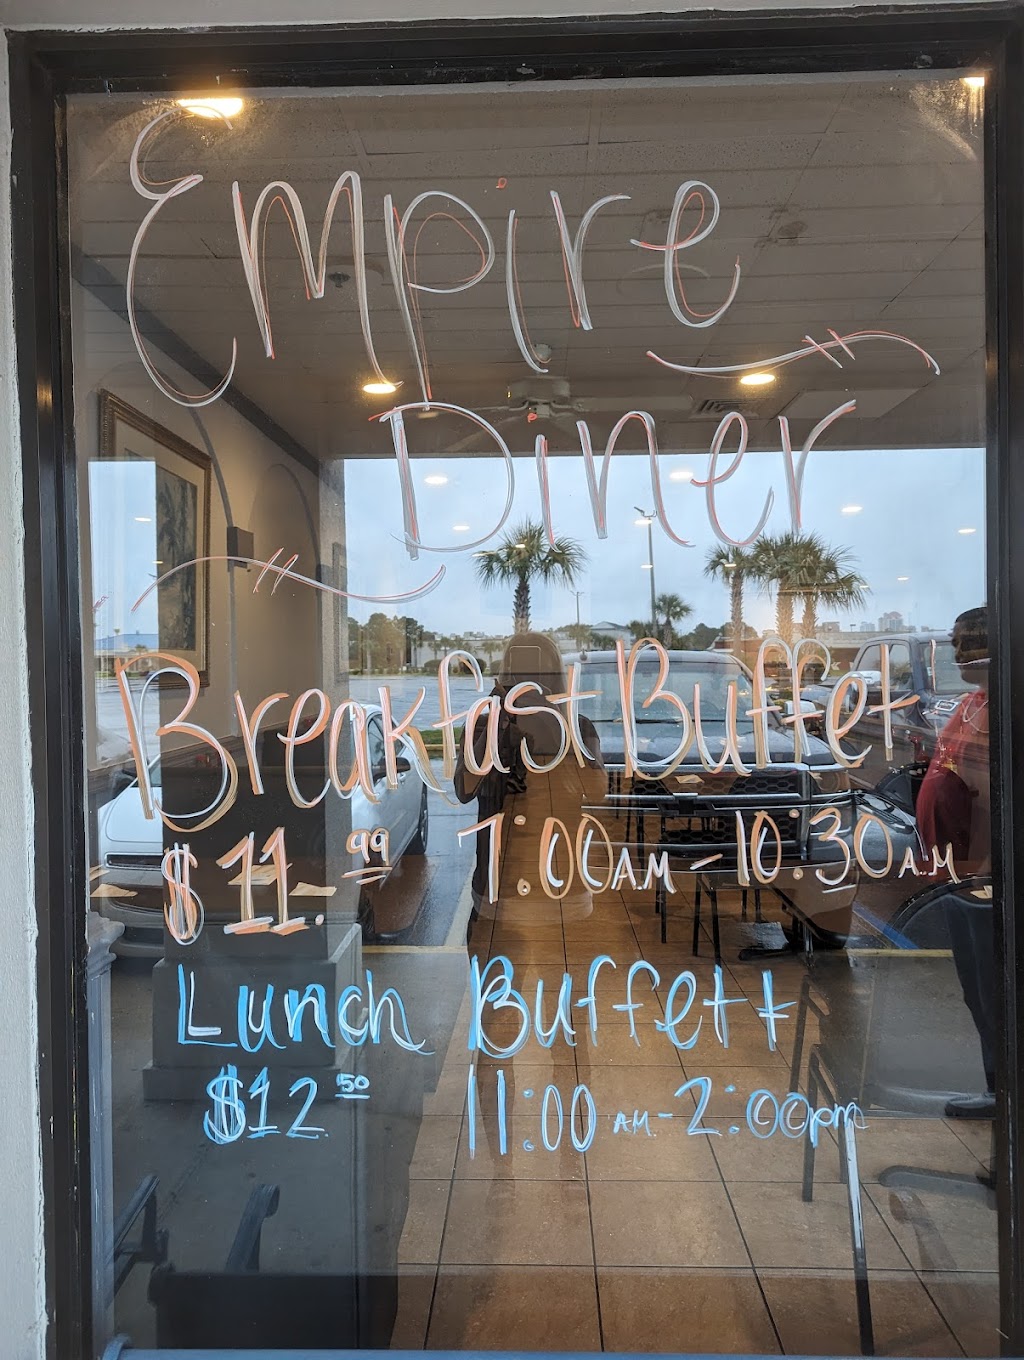 Empire
Diner
Breakfast Buffet
$11.99 7:00AM - 10:30A.M
Lunch Buffett
$12.50 11:00 AM. - 2:00pm